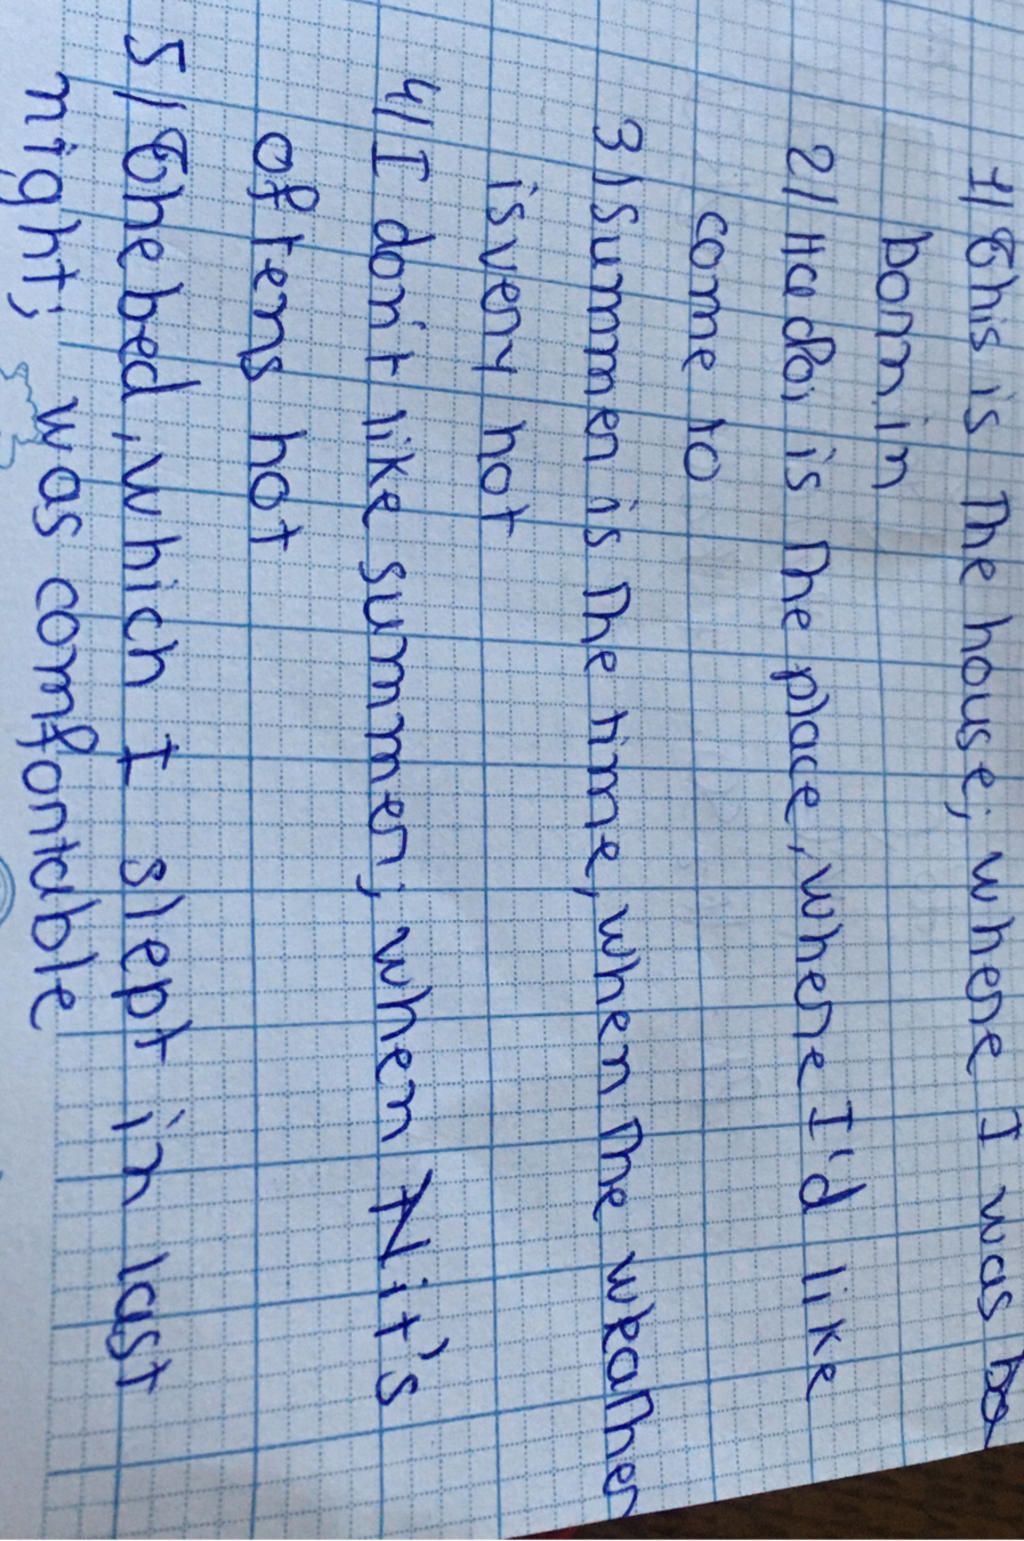 1/ This is the house, where I was
born in
2/ Ha Noi is the place, where I'd like
come to
3/ Summer is the time, when the weather
is very hot
4/ I don't like summer, when it's
oftens hot
5/ The bed, which I slept in last
night, was comfortable